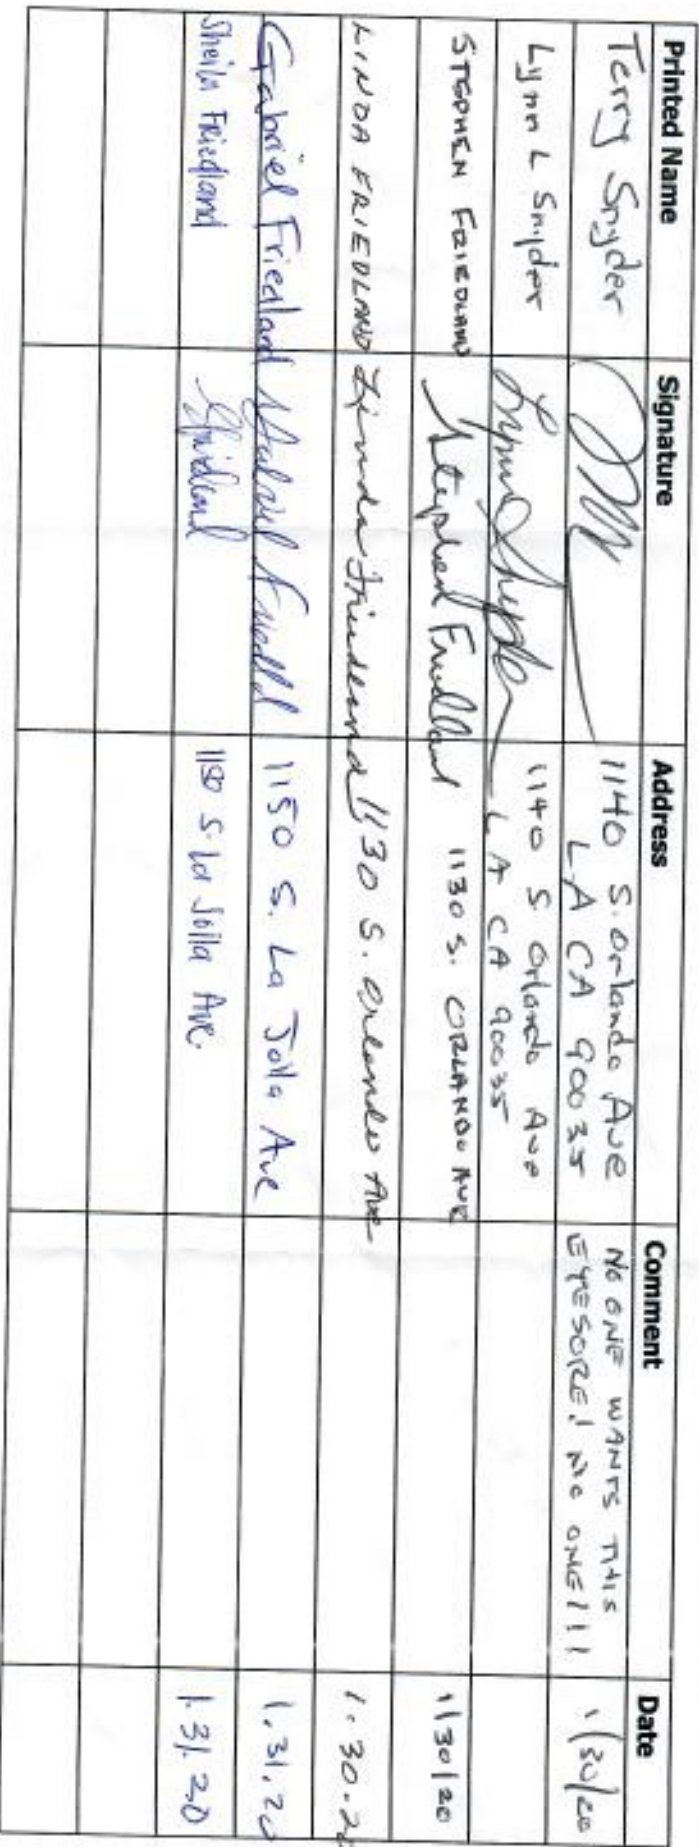 Printed Name Signature Address Comment Date
Terry Snyder 1140 S. Orlando Ave NO ONE WANTS THIS 1/30/20
LA CA 90035 EYESORE! NO ONE!!!
Lynn L Snyder Lynn Snyder 1140 S Orlando Ave
LA CA 90035
STEPHEN FRIEDLAND Stephen Friedland 1130 S. ORLANDO AVE 1/30/20
LINDA FRIEDLAND Linda Friedland 1130 S. Orlando Ave 1.30.20
Gabriel Friedland Gabriel Friedland 1150 S. La Jolla Ave 1.31.20
Sheila Friedland 1150 S. La Jolla Ave. 1.31.20